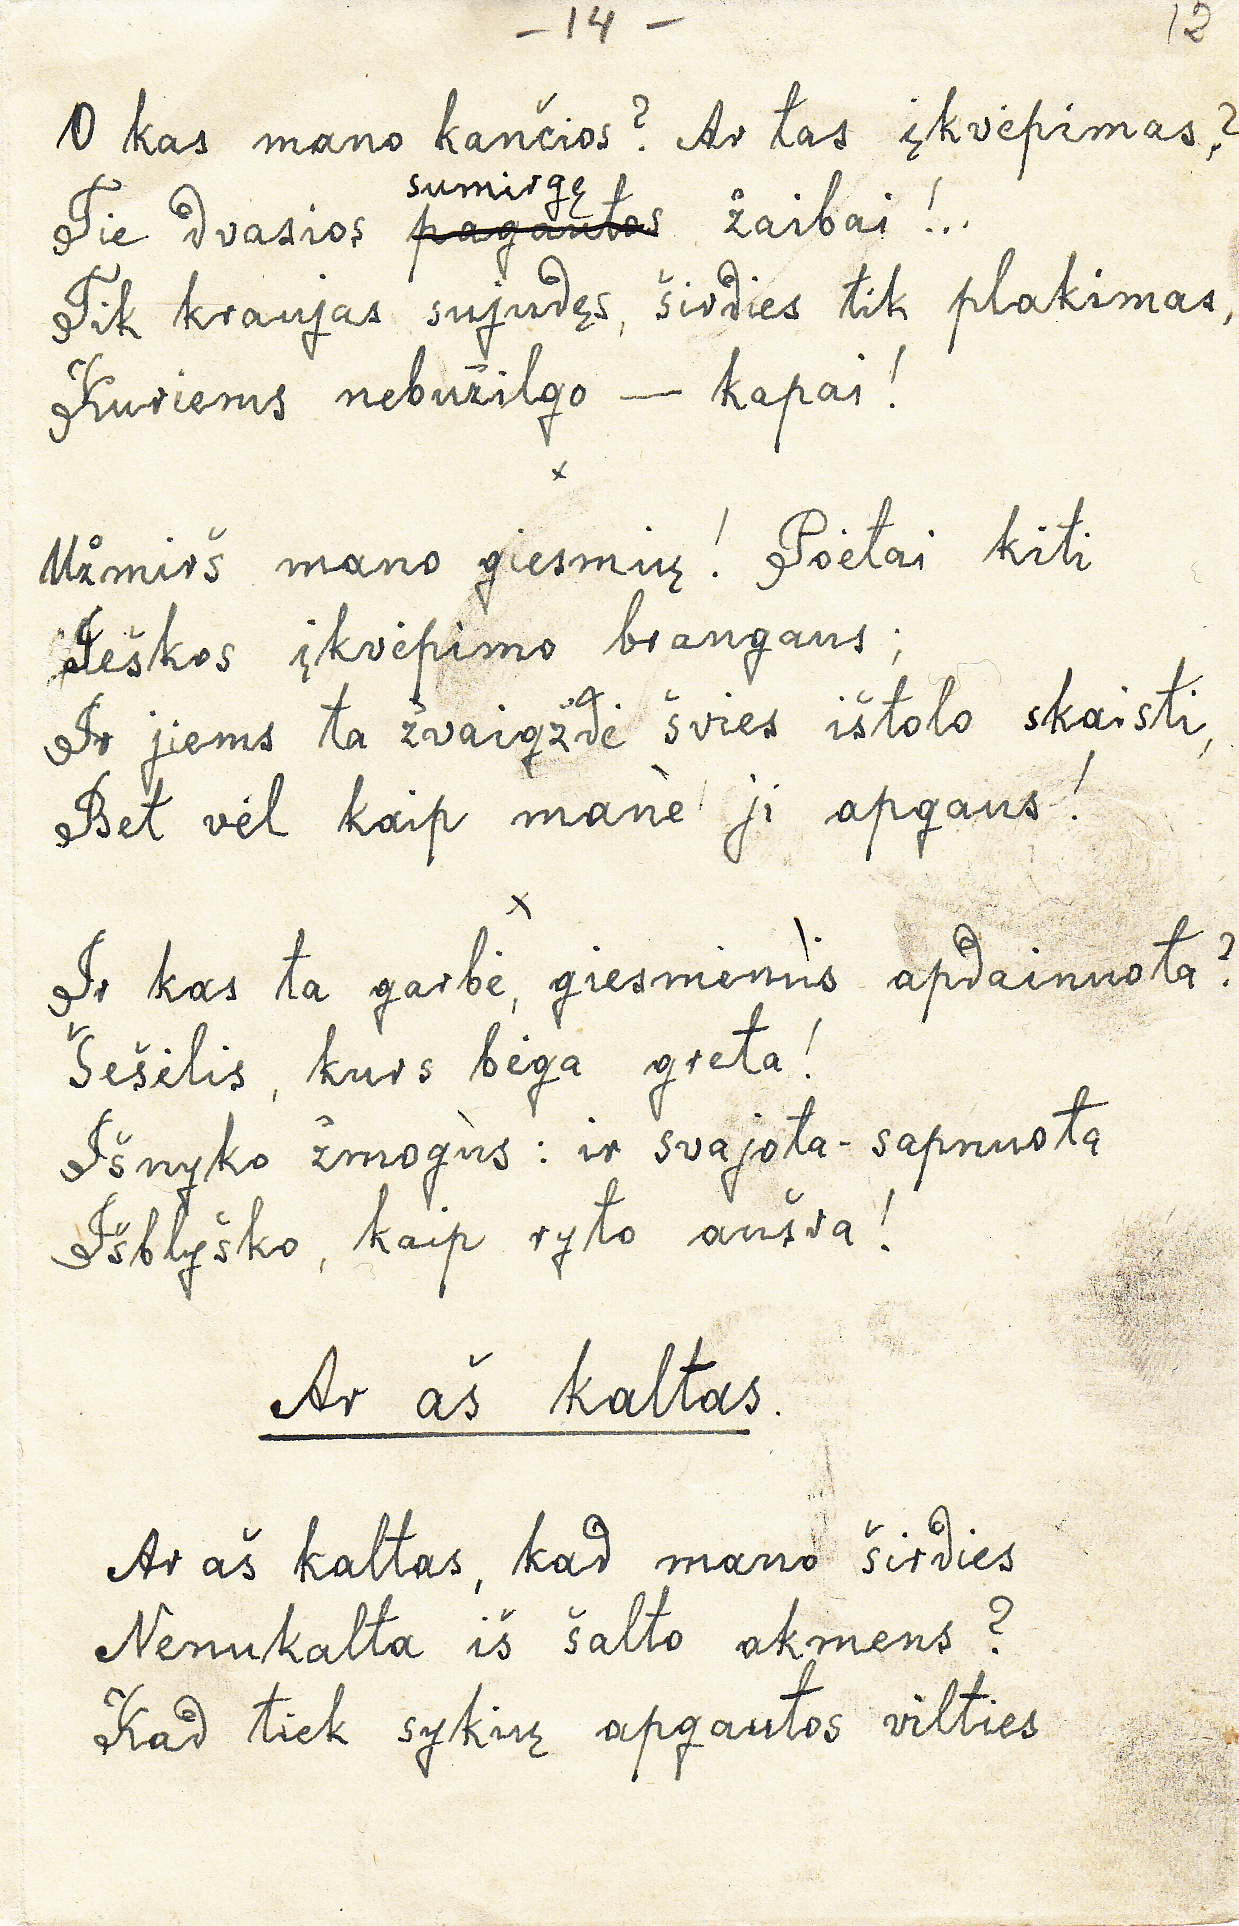 – 14 –
12
O kas mano kančios? Ar tas įkvėpimas,?
sumirgę
Tie dvasios pagautos žaibai!..
Tik kraujas sujudęs, širdies tik plakimas,
Kuriems nebužilgo — kapai!
x
Užmirš mano giesmių! Poėtai kiti
Ieškos įkvėpimo brangaus;
Ir jiems ta žvaigždė švies ištolo skaisti,
Bet vėl kaip manè ji apgaus!
x
Ir kas ta garbė, giesmėmìs apdainuota?
Šešėlis, kurs bėga greta!
Išnyko žmogùs: ir svajota-sapnuota
Išblyško, kaip ryto aušra!
Ar aš kaltas.
Ar aš kaltas, kad mano širdies
Nenukalta iš šalto akmens?
Kad tiek sykių apgautos vilties